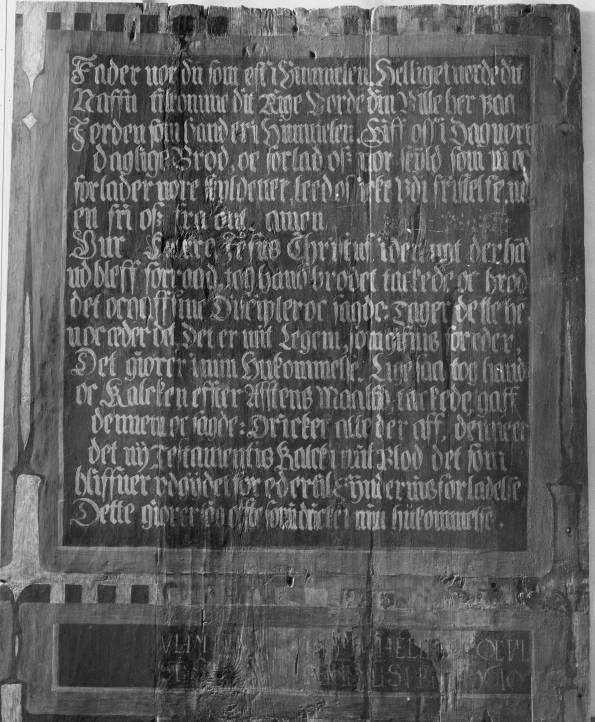 Fader vor du som est i Himmelen, Helliget vorde dit
Naffn tilkomme dit Rige Vorde din Ville her paa
Jorden som hand er i Himmelen. Giff oss i Dag vort
daglige Brod, oc forlad oss vor skyld som wi oc
forlader vore skyldener, leed oss icke vdi fristelse, m
en fri oss fra ont. amen
Vur Herre Jesus Christus i den nat der ha
nd bleff forraad, tog hand brodet tackede oc brod
det oc gaff sine Discipler oc sagde: Tager dette he
n oc æder det, Det er mit Legem, som giffuis for eder,
Det giorer i min Hukommelse, Lige saa tog hand
oc Kalcken effter Afftens Maaltid, tackede, gaff
dennem oc sagde: Dricker alle der aff, denne er
det nÿ Testamentis Kalck i mit Blod det som
bliffuer vdgydet for eder til Syndernis forladelse
Dette giorer saa offte som i dricke i min hukommelse.